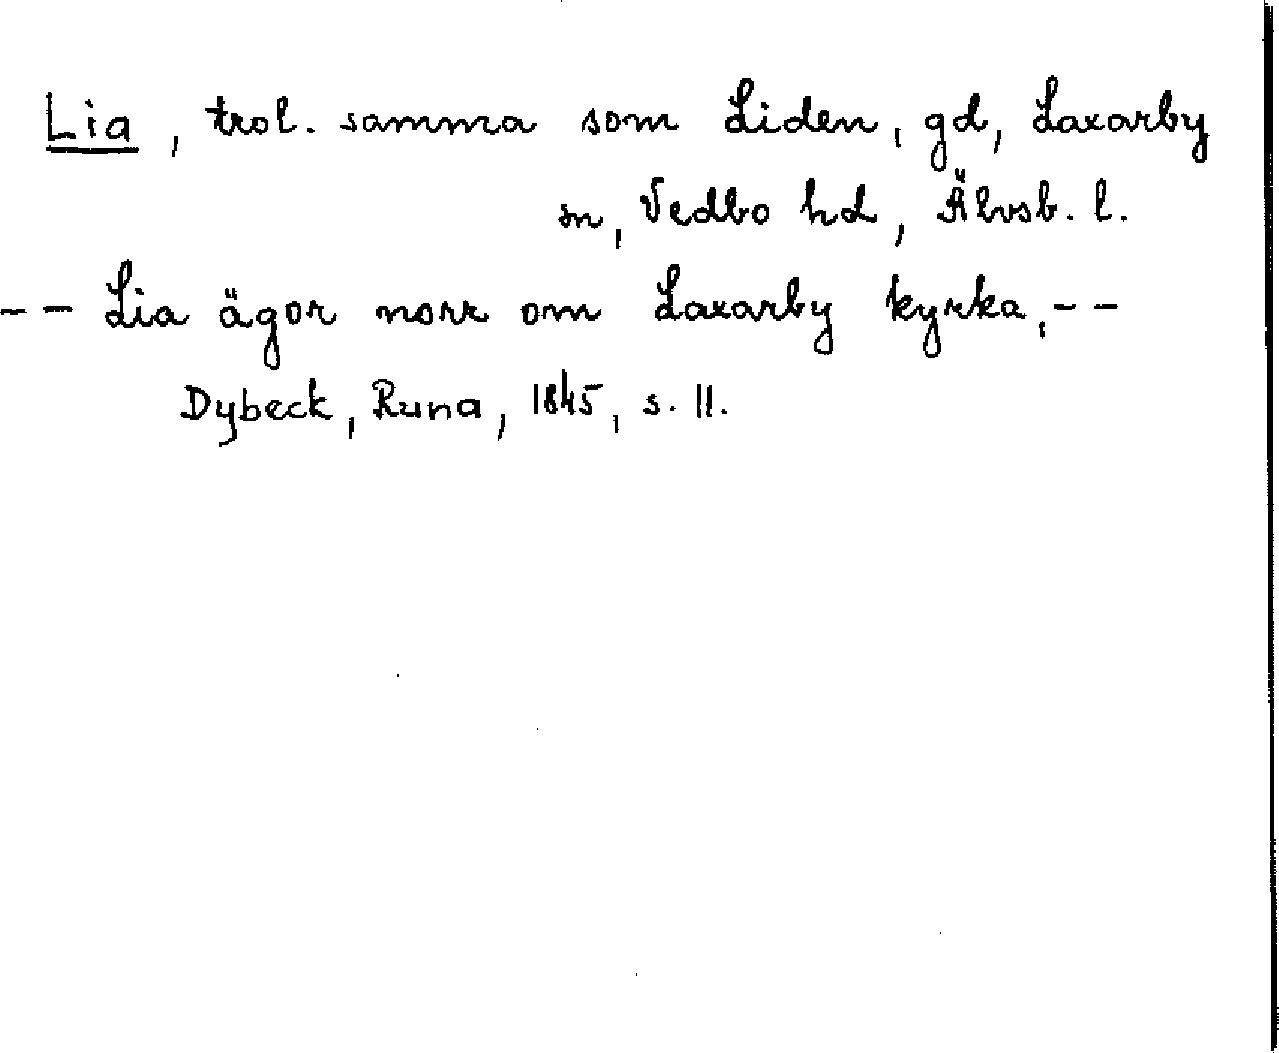 Lia, trol. samma som Liden, gd, Laxarby
sn, Vedbo hd, Älvsb. l.
-- Lia ägor norr om Laxarby kyrka, --
Dybeck, Runa, 1845, s. 11.